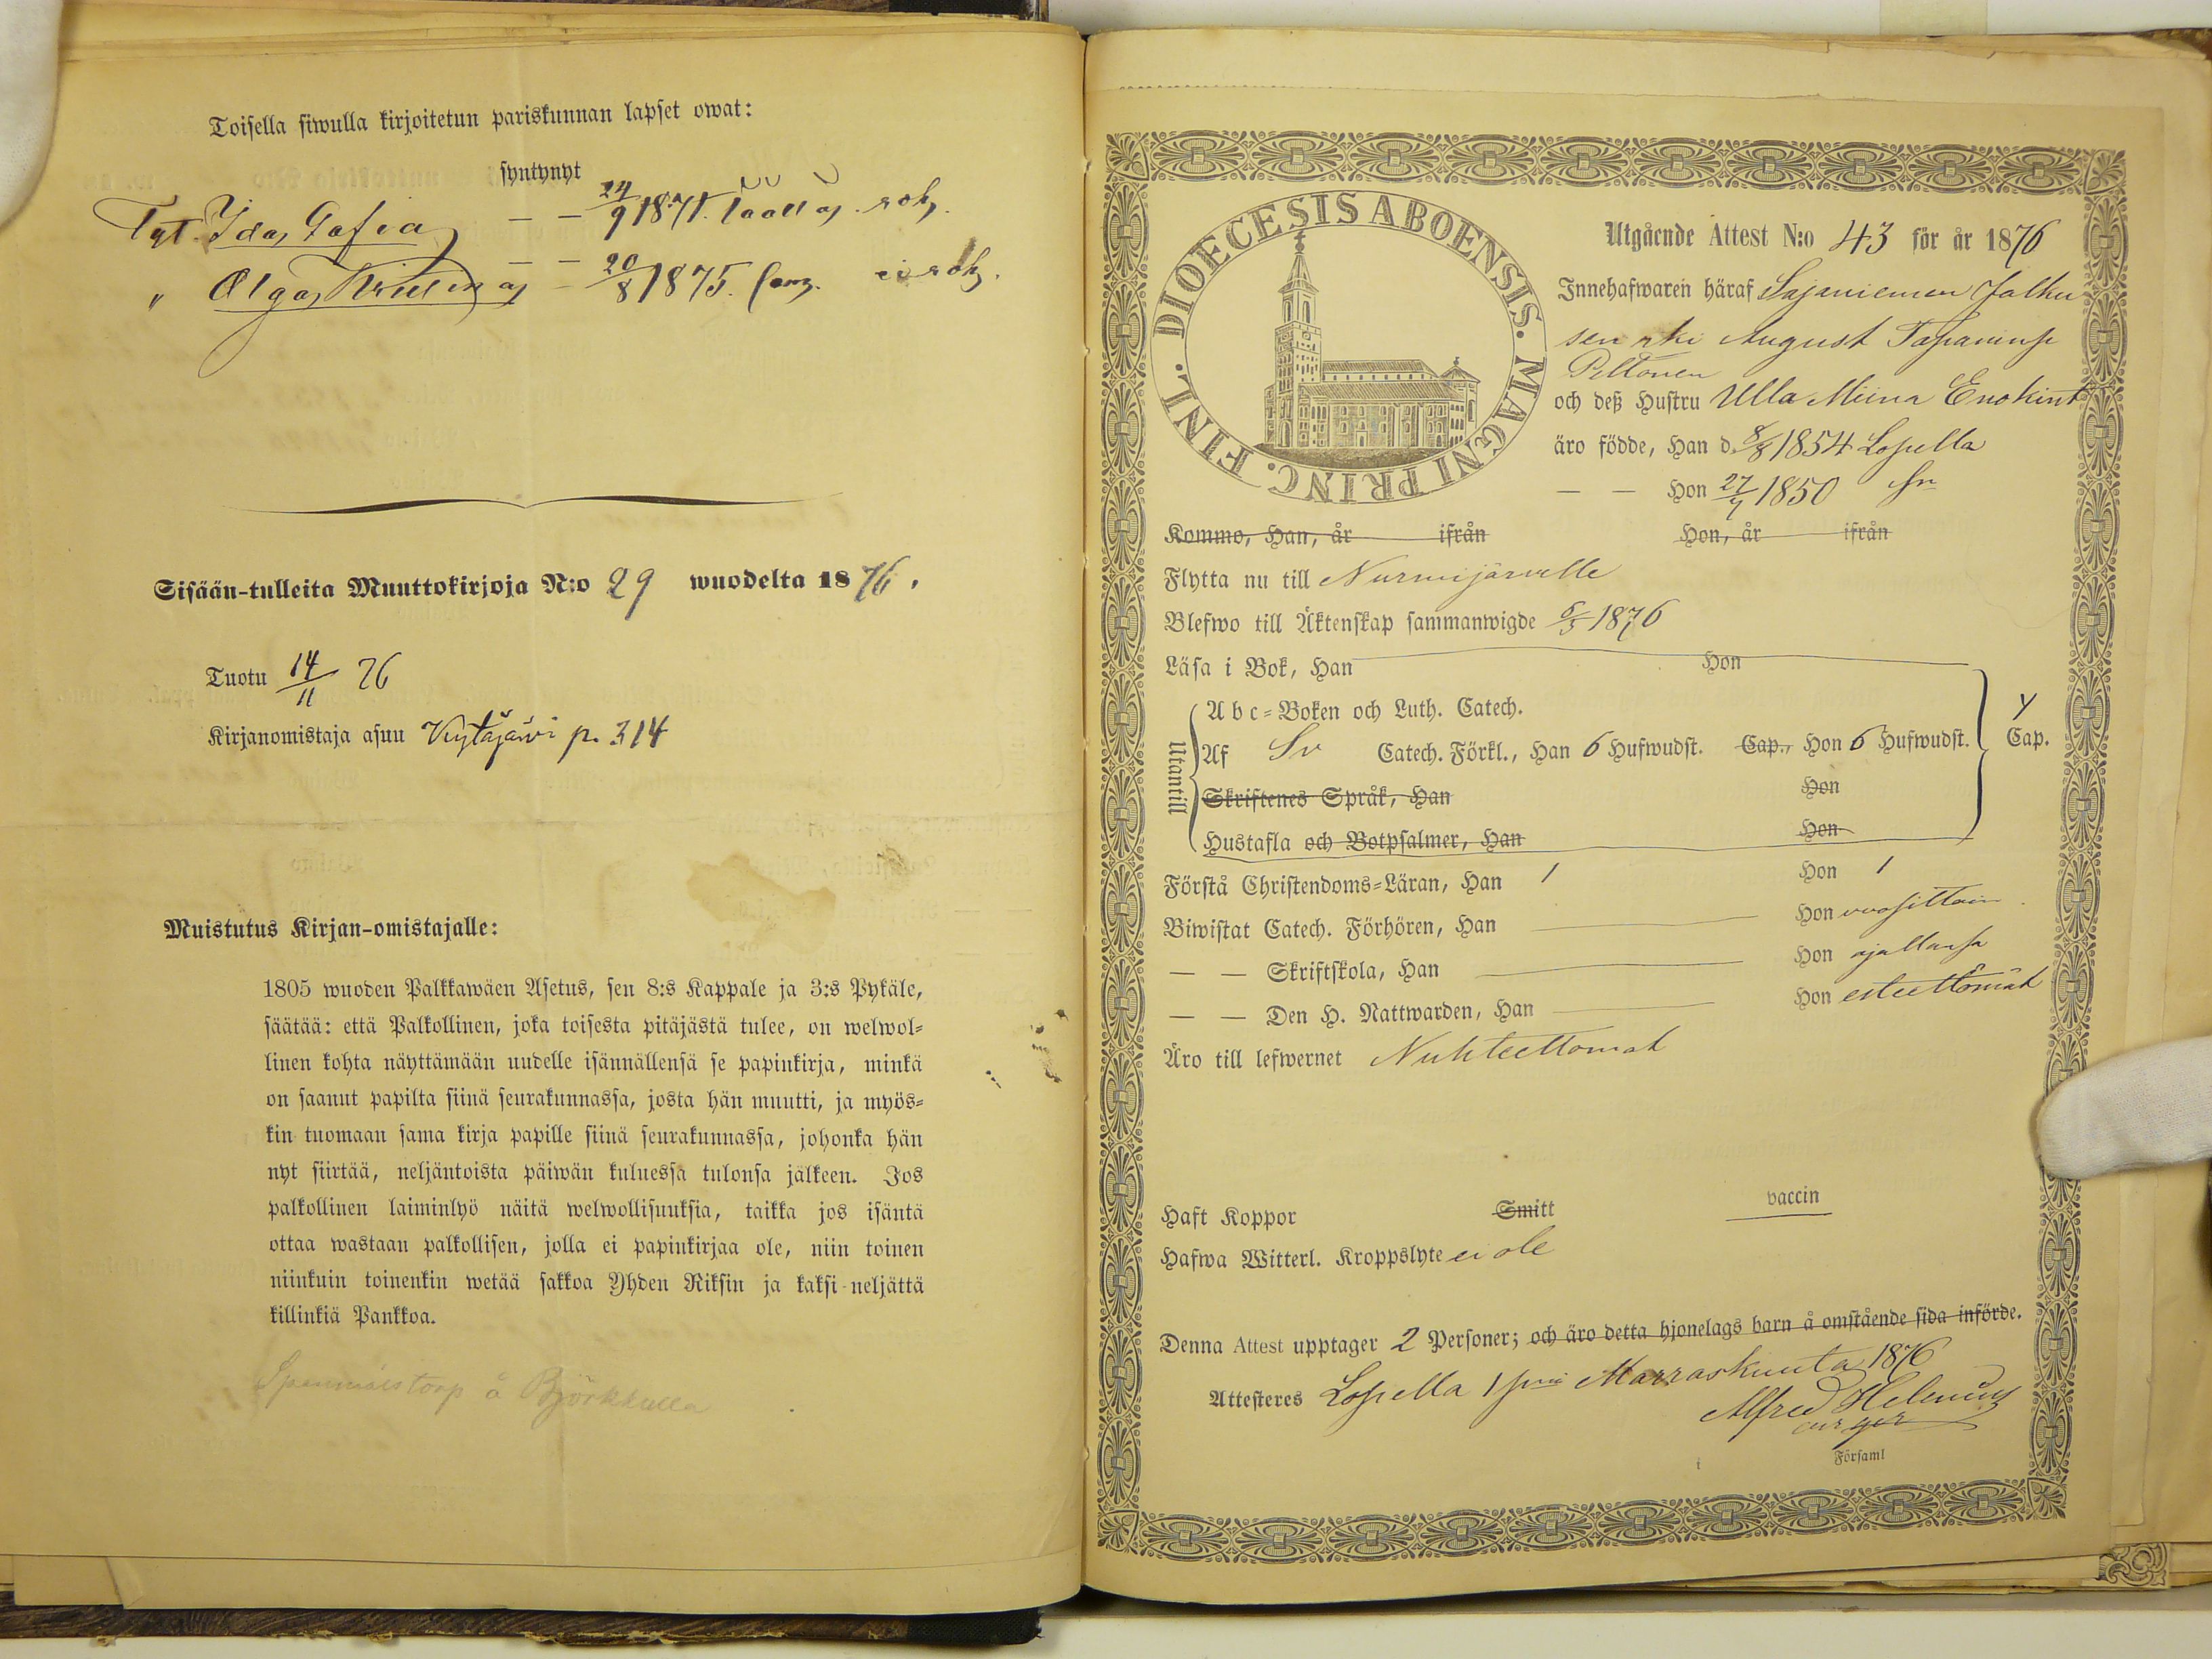 Toisella siwulla kirjoitetun pariskunnan lapset owat:
syntynyt
Tyt. Ida Sofia — — 24/9 1871. täällä rok.
" Olga — — 20/8 1875. ei rok.
Sisään-tulleita Muuttokirjoja N:o 29 wuodelta 1876.
Tuotu 14/11 76
Kirjanomistaja asuu Kytäjärvi p. 314
Muistutus Kirjan-omistajalle:
1805 wuoden Palkkawäen Asetus, sen 8:s Kappale ja 3:s Pykäle,
säätää: että Palkollinen, joka toisesta pitäjästä tulee, on welwol=
linen kohta näyttämään uudelle isännällensä se papinkirja, minkä
on saanut papilta siinä seurakunnassa, josta hän muutti, ja myös=
kin tuomaan sama kirja papille siinä seurakunnassa, johonka hän
nyt siirtää, neljäntoista päiwän kuluessa tulonsa jälkeen. Jos
palkollinen laiminlyö näitä welwollisuuksia, taikka jos isäntä
ottaa wastaan palkollisen, jolla ei papinkirjaa ole, niin toinen
niinkuin toinenkin wetää sakkoa Yhden Riksin ja kaksi neljättä
killinkiä Pankkoa.
torp å Björkkulla
DIOECESIS ABOENSIS. MAGNI PRINC. FINL.
Utgående Attest N:o 43 för år 1876
Innehafwaren häraf Sajaniemen Jalku
sen rki August Tapaninp
Peltonen
och deß Hustru Ulla Miina Enokint
äro födde, Han d. 8/8 1854 Lopella
— — Hon 27/7 1850 sn
Kommo, Han, år ifrån Hon, år ifrån
Flytta nu till Nurmijärvelle
Blefwo till Äktenskap sammanwigde 6/5 1876
Läsa i Bok, Han Hon
Utantill
Abc=Boken och Luth. Catech.
Af Sv Catech. Förkl., Han 6 Hufwudst. Cap., Hon 6 Hufwudst. Cap.
Skriftenes Språk, Han Hon
Hustafla och Botpsalmer, Han Hon
Förstå Christendoms=Läran, Han 1 Hon 1
Biwistat Catech. Förhören, Han Hon vuosittain
— — Skriftskola, Han Hon ajallansa
— — Den H. Nattwarden, Han Hon esteettömät
Äro till lefwernet Nuhteettomat
Haft Koppor Smitt vaccin
Hafwa Witterl. Kroppslyte ei ole
Denna Attest upptager 2 Personer; och äro detta hjonelags barn å omstående sida införde.
Attesteres Lopella 1 pnä Marraskuuta 1876
Alfred Helenius
Församl
i